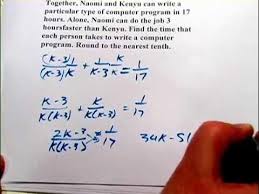 Together, Naomi and Kenyu can write a
particular type of computer program in 17
hours. Alone, Naomi can do the job 3
hoursfaster than Kenyu. Find the time that
each person takes to write a computer
program. Round to the nearest tenth.
(K-3)/(K-3)K + 1/K-3 K/K = 1/17
K-3/K(K-3) + K/K(K-3) = 1/17
2K-3/K(K-3) = 1/17 34K-51